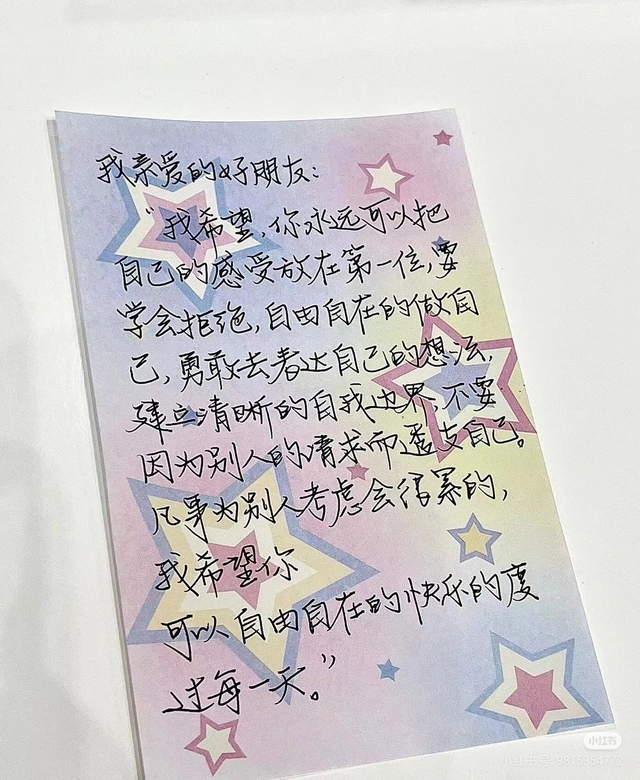 我亲爱的好朋友:
“我希望,你永远可以把
自己的感受放在第一位,要
学会拒绝,自由自在的做自
己,勇敢去表达自己的想法,
建立清晰的自我边界,不要
因为别人的请求而透支自己。
凡事为别人考虑会很累的,
我希望你
可以自由自在的快乐的度
过每一天。”
小红书
小红书号:9815354772